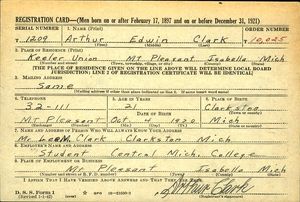 REGISTRATION CARD—(Men born on or after February 17, 1897 and on or before December 31, 1921)
SERIAL NUMBER 1. NAME (Print) ORDER NUMBER
1209 Arthur Edwin Clark 10,025
2. PLACE OF RESIDENCE (Print)
Keeler Union Mt. Pleasant Isabella Mich
[THE PLACE OF RESIDENCE GIVEN ON THE LINE ABOVE WILL DETERMINE LOCAL BOARD
JURISDICTION; LINE 2 OF REGISTRATION CERTIFICATE WILL BE IDENTICAL]
3. MAILING ADDRESS
Same
4. TELEPHONE 5. AGE IN YEARS 6. PLACE OF BIRTH
32-111 21 Clarkston
DATE OF BIRTH
Mt Pleasant Oct 4 1920 Mich
7. NAME AND ADDRESS OF PERSON WHO WILL ALWAYS KNOW YOUR ADDRESS
Clark Clarkston Mich
8. EMPLOYER'S NAME AND ADDRESS
Student Central Mich. College
9. PLACE OF EMPLOYMENT OR BUSINESS
Mt Pleasant Isabella Mich
I AFFIRM THAT I HAVE VERIFIED ABOVE ANSWERS AND THAT THEY ARE TRUE.
D. S. S. Form 1
Clark